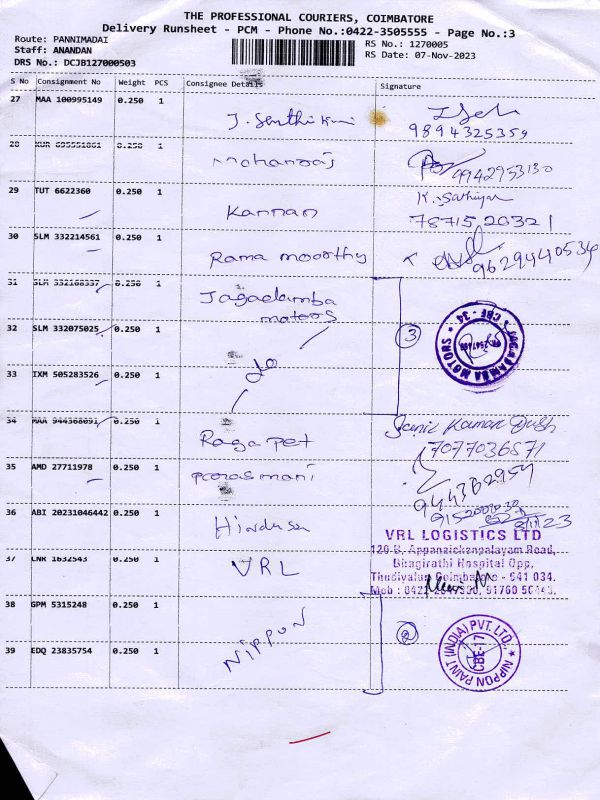 THE PROFESSIONAL COURIERS, COIMBATORE
Delivery Runsheet - PCM - Phone No.:0422-3505555 - Page No.:3
Route: PANNIMADAI
Staff: ANANDAN
DRS No.: DCJB127000503
RS No.: 1270005
RS Date: 07-Nov-2023
S No Consignment No Weight PCS Consignee Details Signature
27 MAA 100995149 0.250 1 J. Senthil
9894325359
28 0.250 1 mohanraj
9942953130
29 TUT 6622360 0.250 1 Kannan K. Sathiya
7871520321
30 SLM 332214561 0.250 1 Rama moorthy
9629440534
31 SLM 332108337 0.250 1 Jagadamba
motors
32 SLM 332075025 0.250 1 3
JAGADAMBA MOTORS * CBE - 34 *
33 IXM 505283526 0.250 1 do
34 MAA 944368691 0.250 1 Raga pet
7077036571
35 AMD 27711978 0.250 1 parasmani
36 ABI 20231046442 0.250 1
VRL LOGISTICS LTD
120-B, Appanaickenpalayam Road,
Bhagirathi Hospital Opp,
Thudiyalur, Coimbatore - 641 034.
37 LNR 1632543 0.250 1 VRL
38 GPM 5315248 0.250 1 NIPPON
2
NIPPON PAINT (INDIA) PVT. LTD. *
CBE-17
39 EDQ 23835754 0.250 1